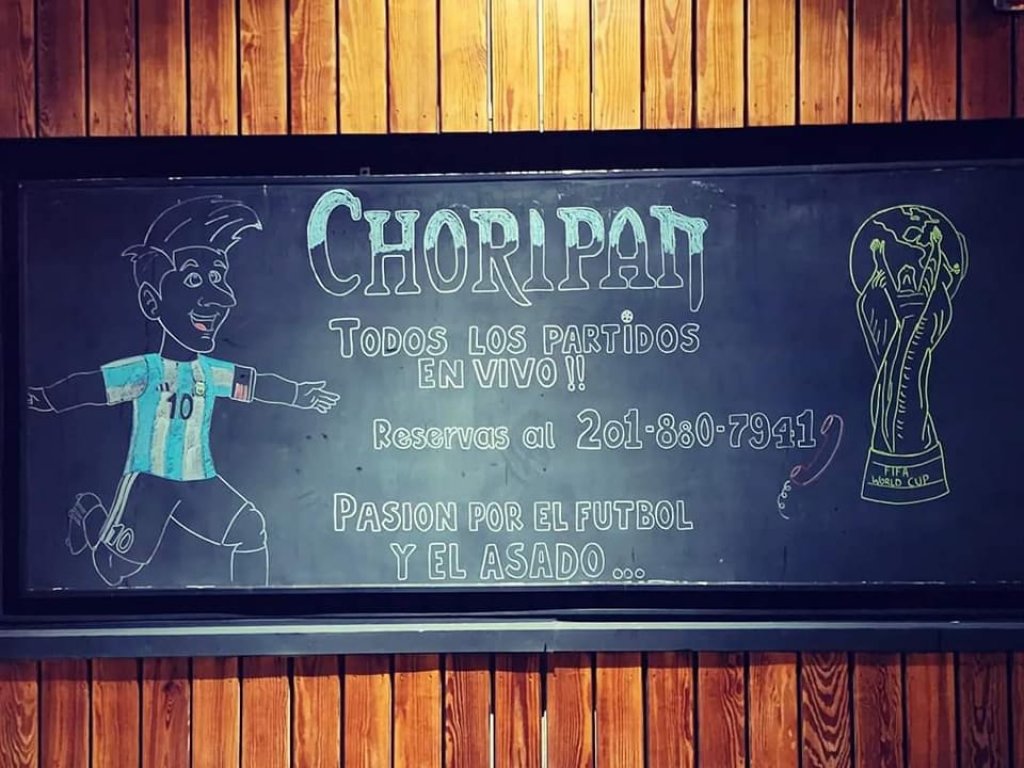 CHORIPAN
TODOS LOS PARTIDOS
EN VIVO !!
Reservas al 201-880-7941
PASION POR EL FUTBOL
Y EL ASADO...
10
10
FIFA
WORLD CUP